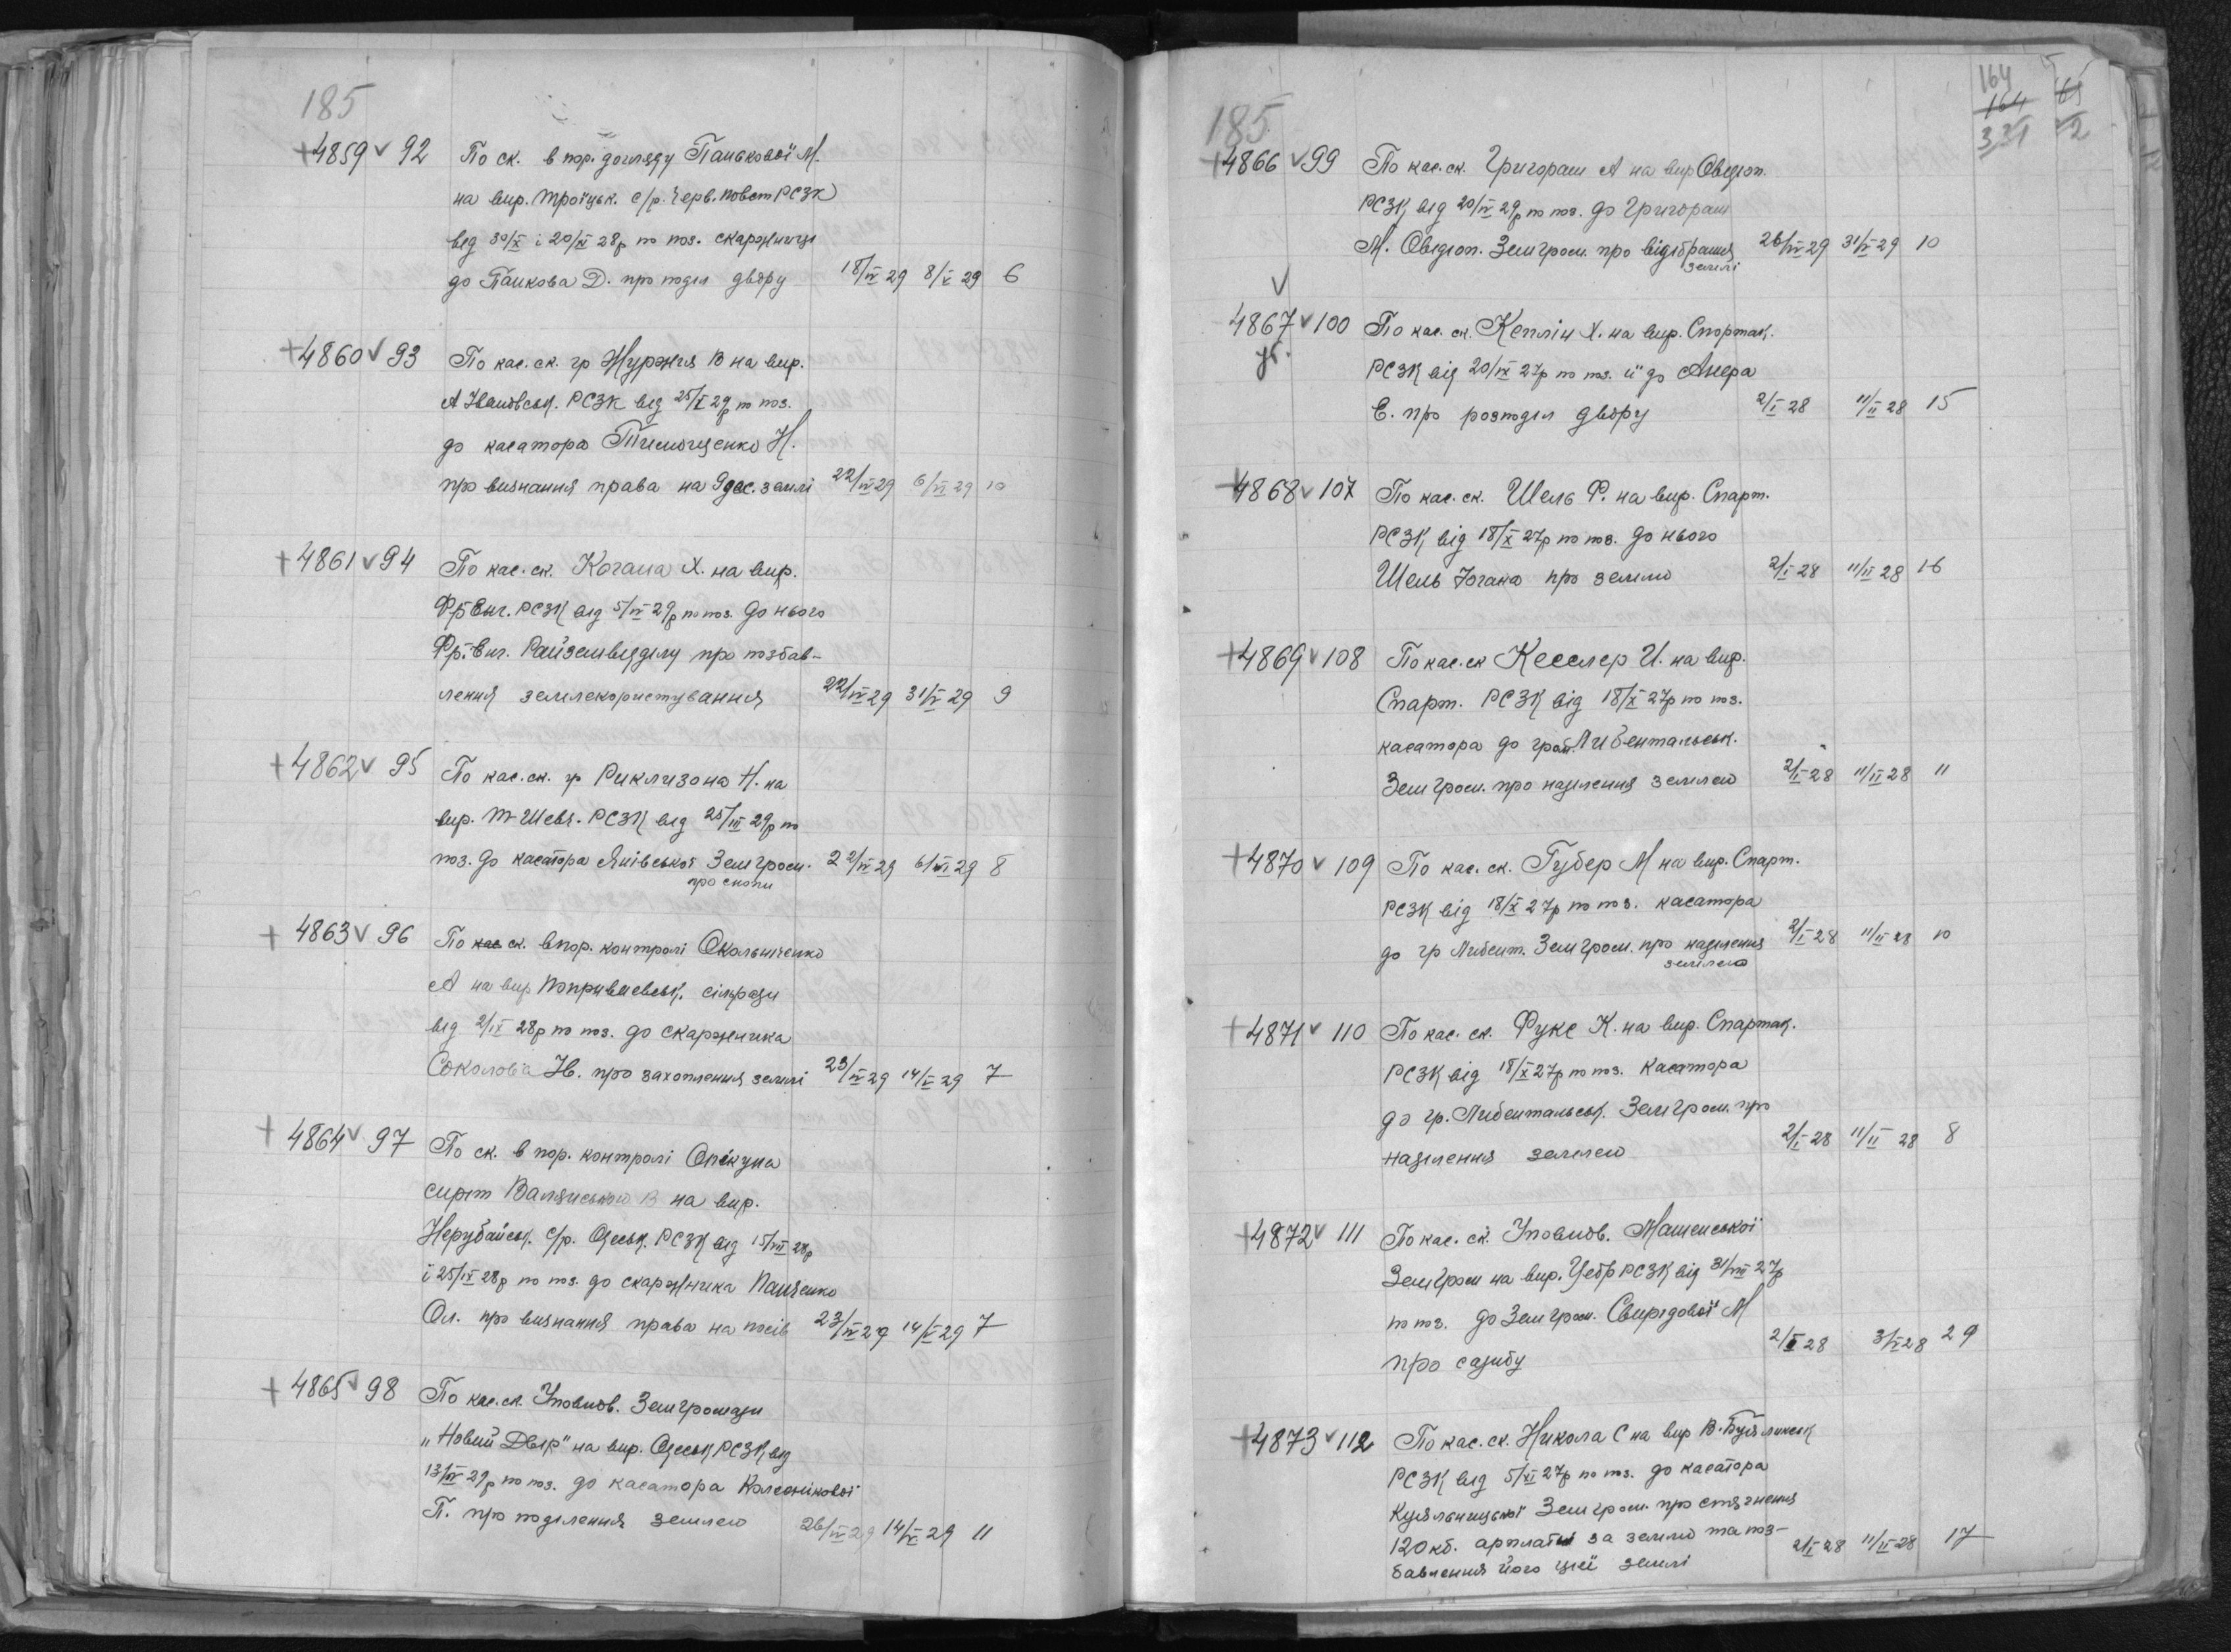 185
+4859 v 92 По ск. в пор. догляду Панькової М.
на вир. Троїцьк. с/р. Черв. повст РСЗК
від 30/X і 20/XI 28р по поз. скаржниці
до Панкова Д. про поділ двору 18/IV 29 8/V 29 6
+4860 v 93 По кас. ск. гр Журжія В на вир.
А Іванівськ. РСЗК від 25/I 29р по поз.
до касатора Тимощенко Н.
про визнання права на 9 дес. землі 22/IV 29 6/VI 29 10
+4861 v 94 По кас. ск. Когана Х. на вир.
Фр Енг. РСЗК від 5/IV 29р по поз. до нього
Фр. Енг. Райземвідділу про позбав-
лення землекористування 22/IV 29 31/V 29 9
+4862 v 95 По кас. ск. гр Риклизона Н. на
вир. Т-Шевч. РСЗК від 25/III 29р по
поз. до касатора Янівської Земгром. 22/IV 29 6/VI 29 8
про снопи
+ 4863 v 96 По кас ск. в пор. контролі Окольніченко
А на вир сільради
від 2/IX 28р по поз. до скаржника
Соколова Ів. про захоплення землі 23/IV 29 14/V 29 7
+ 4864 v 97 По ск. в пор. контролі Опікуна
сиріт В на вир.
Нерубайськ. с/р. Одеськ. РСЗК від 15/VII 28р
і 25/IX 28р по поз. до скаржника Панченко
Ол. про визнання права на посів 23/IV 29 14/V 29 7
+ 4865 v 98 По кас. ск. Уповнов. Земгромади
„Новий Двір" на вир. Одеськ РСЗК від
13/IV 29р по поз. до касатора Колеснікової
П. про поділення землею 26/IV 29 14/V 29 11
164
164
331
185
+4866 v 99 По кас. ск. Григораш А на вир Овідіоп.
РСЗК від 20/IV 29р по поз. до Григораш
М. Овідіоп. Земгром. про відібрання 26/IV 29 31/V 29 10
землі
v
4867 v 100 По кас. ск. Кеплін Х. на вир. Спартак.
РСЗК від 20/IX 27р по поз. її до Анера
Е. про розподіл двору 2/I 28 11/II 28 15
+4868 v 107 По кас. ск. Шель Ф. на вир. Спарт.
РСЗК від 18/X 27р по поз. до нього
Шель Іогана про землю 2/I 28 11/II 28 16
+4869 v 108 По кас. ск Кесслер И. на вир.
Спарт. РСЗК від 18/X 27р по поз.
касатора до гром. Либентальськ.
Земгром. про наділення землею 2/I 28 11/II 28 11
+4870 v 109 По кас. ск. Губер М на вир. Спарт.
РСЗК від 18/X 27р по поз. касатора
до гр Либент. Земгром. про наділення 2/I 28 11/II 28 10
землею
+4871 v 110 По кас. ск. Фукс К. на вир. Спартак.
РСЗК від 18/X 27р по поз. касатора
до гр. Либентальськ. Земгром. про
наділення землею 2/I 28 11/II 28 8
+4872 v 111 По кас. ск. Уповнов. Машенської
Земгром на вир. Цебр РСЗК від 31/VIII 27р
по поз. до Земгром. Свирідової М
про садибу 2/I 28 3/V 28 29
+4873 v 112 По кас. ск. Никола С на вир В-Буялицьк
РСЗК від 5/XI 27р по поз. до касатора
Куяльницької Земгром. про стягнення
120 кб. арплати за землю та поз-
бавлення його цієї землі 2/I 28 11/II 28 17